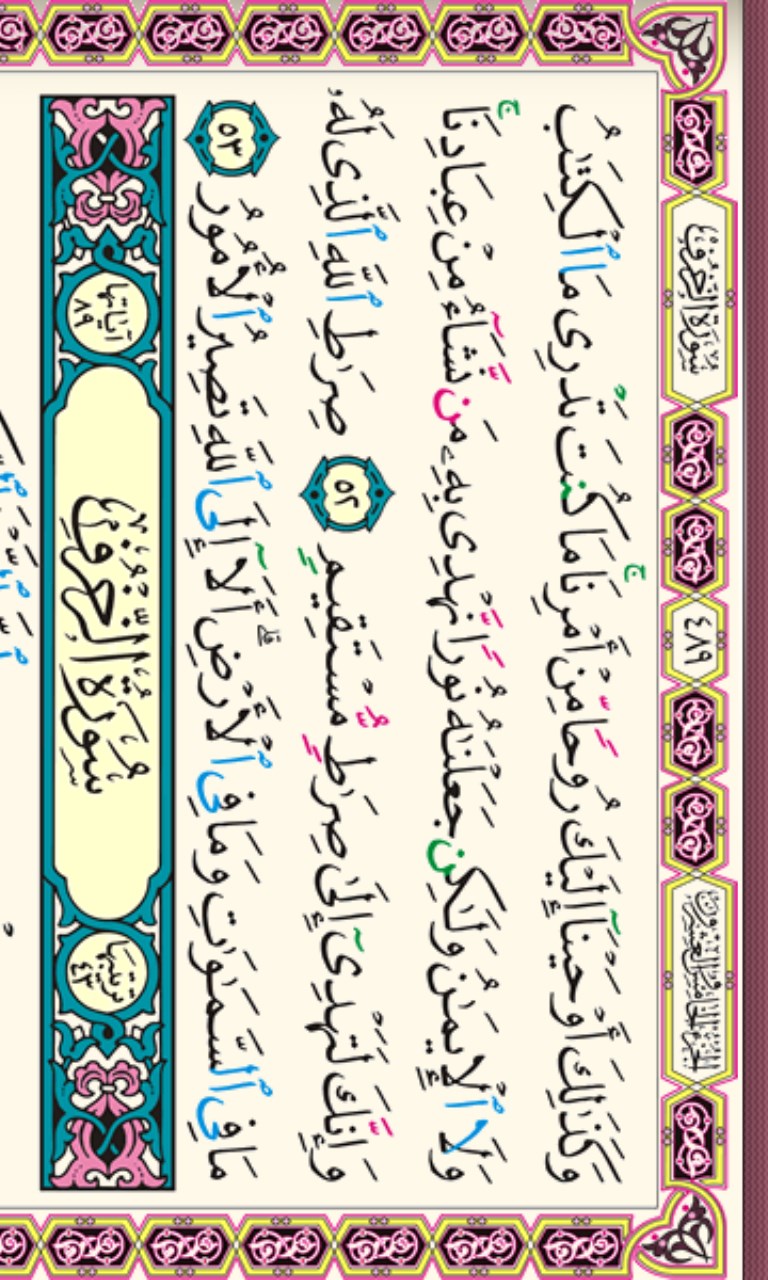 الجزء الخامس والعشرون ٤٨٩ سُورَةُ الزُّخْرُفِ
وَكَذَٰلِكَ أَوْحَيْنَآ إِلَيْكَ رُوحًا مِّنْ أَمْرِنَا ۚ مَا كُنتَ تَدْرِى مَا ٱلْكِتَٰبُ
وَلَا ٱلْإِيمَٰنُ وَلَٰكِن جَعَلْنَٰهُ نُورًا نَّهْدِى بِهِۦ مَن نَّشَآءُ مِنْ عِبَادِنَا ۚ
وَإِنَّكَ لَتَهْدِىٓ إِلَىٰ صِرَٰطٍ مُّسْتَقِيمٍ ٥٢ صِرَٰطِ ٱللَّهِ ٱلَّذِى لَهُۥ
مَا فِى ٱلسَّمَٰوَٰتِ وَمَا فِى ٱلْأَرْضِ ۗ أَلَآ إِلَى ٱللَّهِ تَصِيرُ ٱلْأُمُورُ ٥٣
ترتيبها ٤٣ سُورَةُ الزُّخْرُفِ آياتها ٨٩